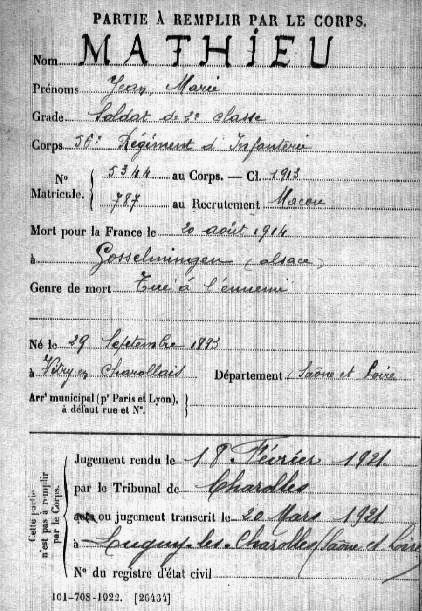 PARTIE À REMPLIR PAR LE CORPS.
Nom MATHIEU
Prénoms Jean Marie
Grade Soldat de 2e classe
Corps 56e Régiment d'Infanterie
N° 5344 au Corps. — Cl. 1913
Matricule. 787 au Recrutement Macon
Mort pour la France le 20 août 1914
à Gosselmingen (alsace)
Genre de mort Tué à l'ennemi
Né le 29 Septembre 1893
à Vitry en Charollais Département Saône et Loire
Arr¹ municipal (p¹ Paris et Lyon),
à défaut rue et N°.
Cette partie
n'est pas à remplir
par le Corps.
Jugement rendu le 18 Février 1921
par le Tribunal de Charolles
acte ou jugement transcrit le 20 Mars 1921
à Lugny-les-Charolles (Saône et Loire
N° du registre d'état civil
101-708-1922. [26434]